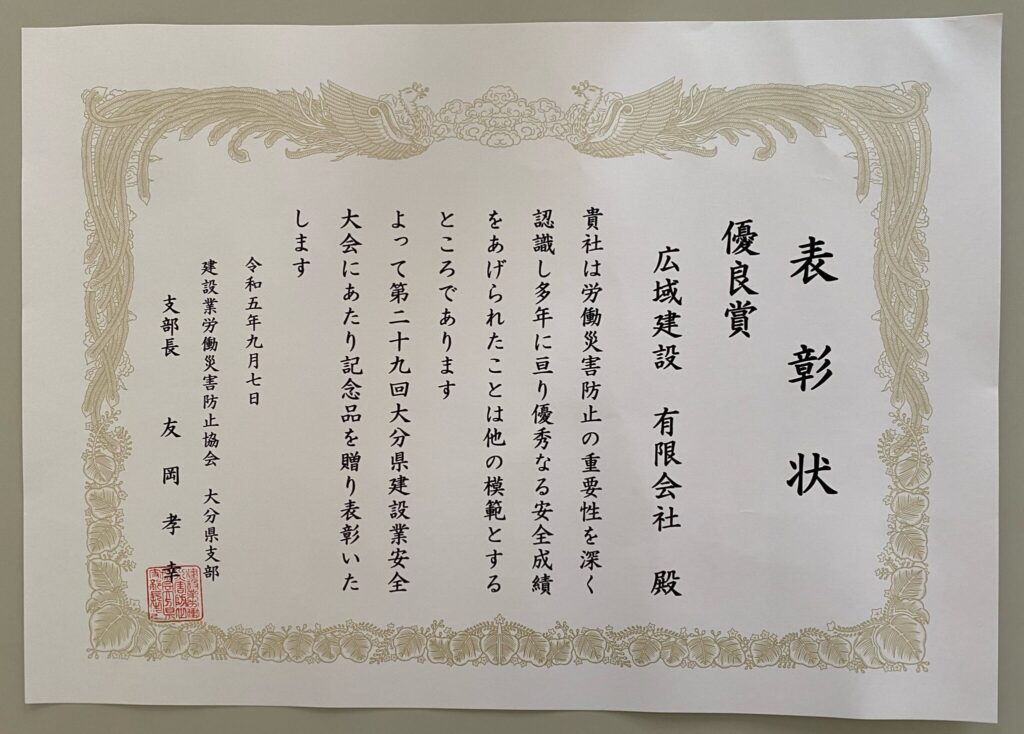 表彰状
優良賞
広域建設 有限会社 殿
貴社は労働災害防止の重要性を深く
認識し多年に亘り優秀なる安全成績
をあげられたことは他の模範とする
ところであります
よって第二十九回大分県建設業安全
大会にあたり記念品を贈り表彰いた
します
令和五年九月七日
建設業労働災害防止協会 大分県支部
支部長 友岡孝幸